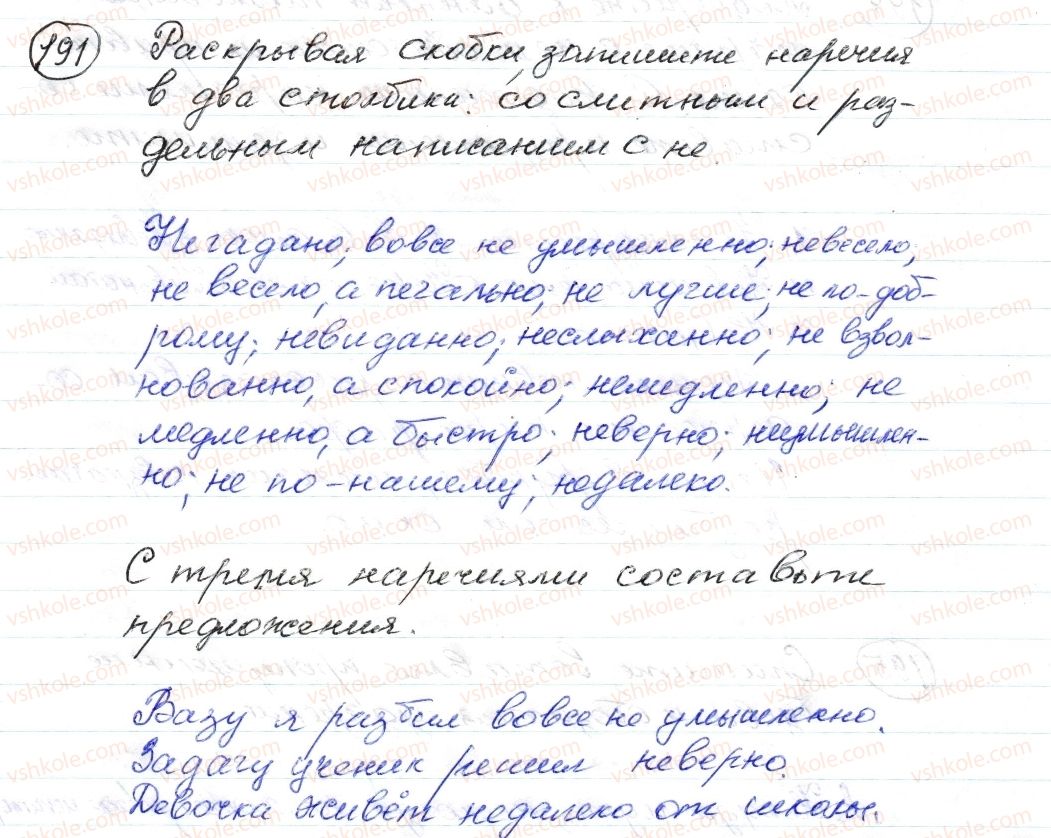 191 Раскрывая скобки, запишите наречия
в два столбика: со слитным и раз-
дельным написанием с не.
Негадано; вовсе не умышленно; невесело;
не весело, а печально; не лучше; не по-доб-
рому; невиданно; неслыханно; не взвол-
нованно, а спокойно; немедленно; не
медленно, а быстро; неверно; неумышлен-
но; не по-нашему; недалеко.
С тремя наречиями составьте
предложения.
Вазу я разбил вовсе не умышленно.
Задачу ученик решил неверно.
Девочка живёт недалеко от школы.